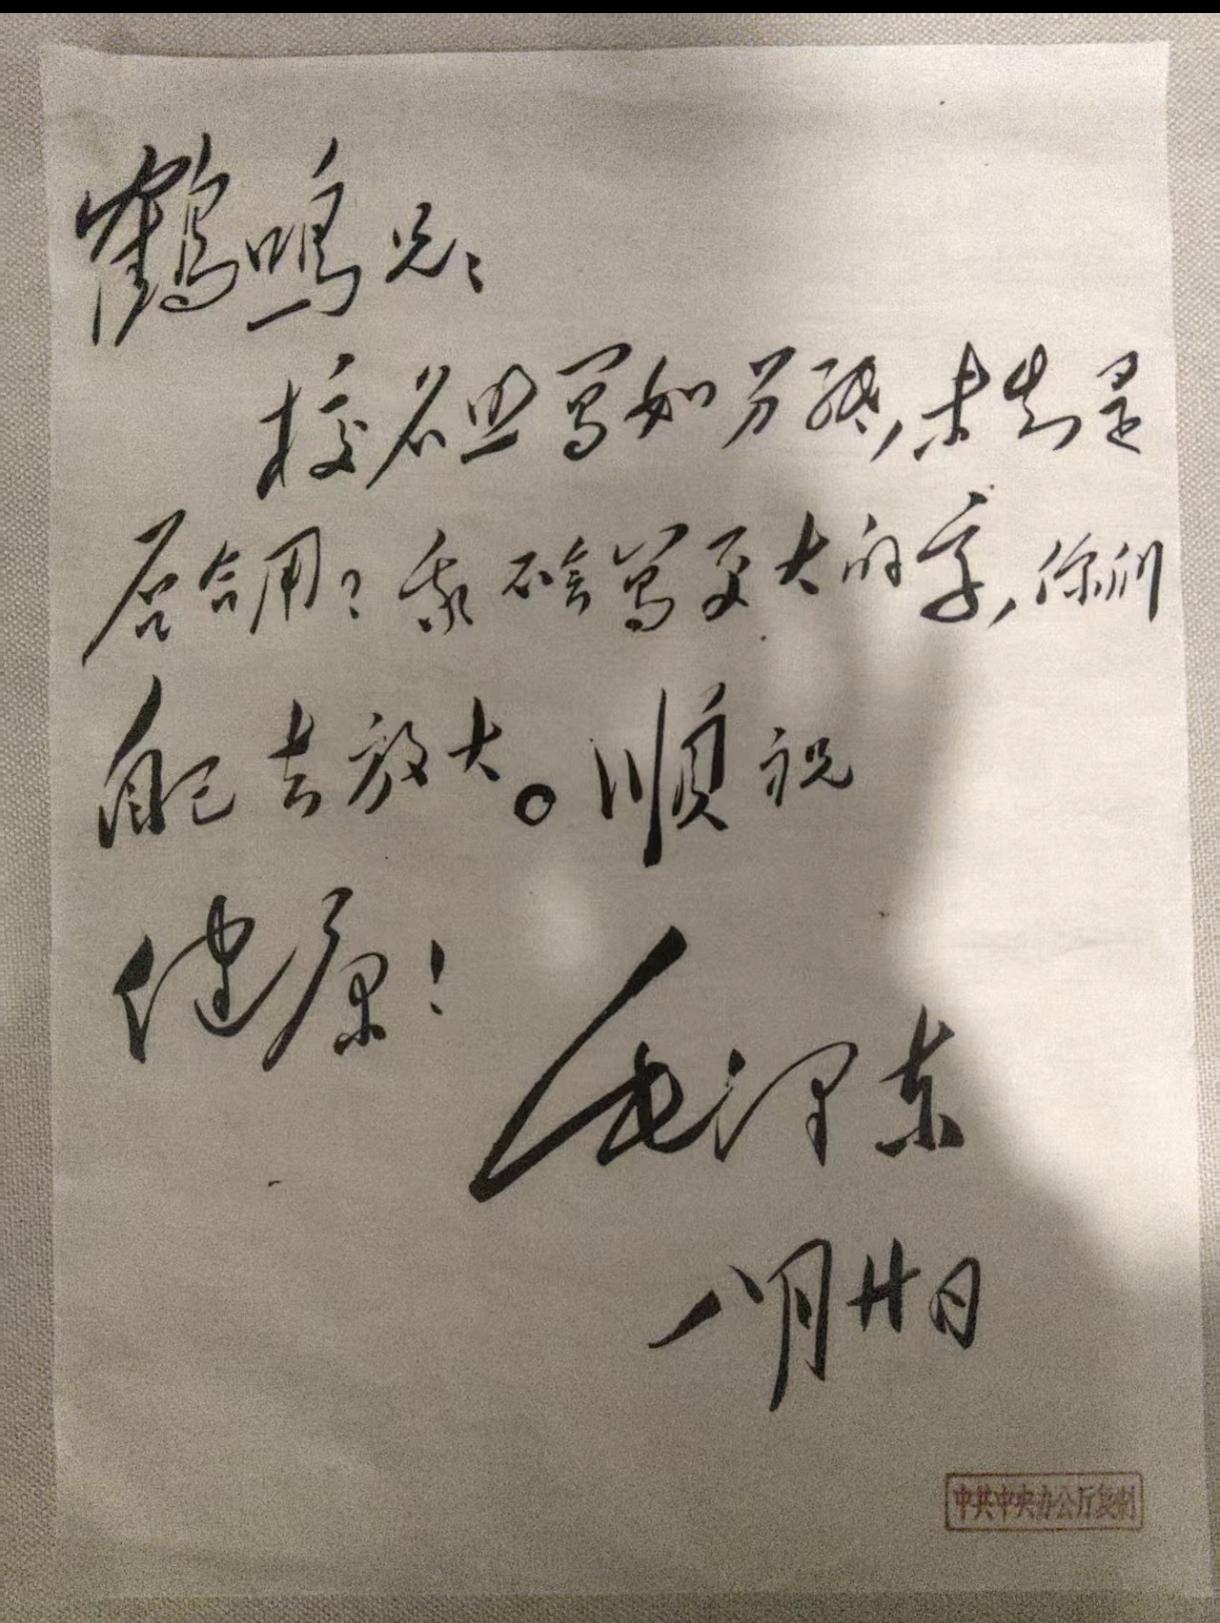 鶴鳴兄：
校名照寫如另紙，未知是
否合用？我不會寫更大的字，你们
自己去放大。順祝
健康！
毛泽东
八月廿日
中共中央办公厅复制